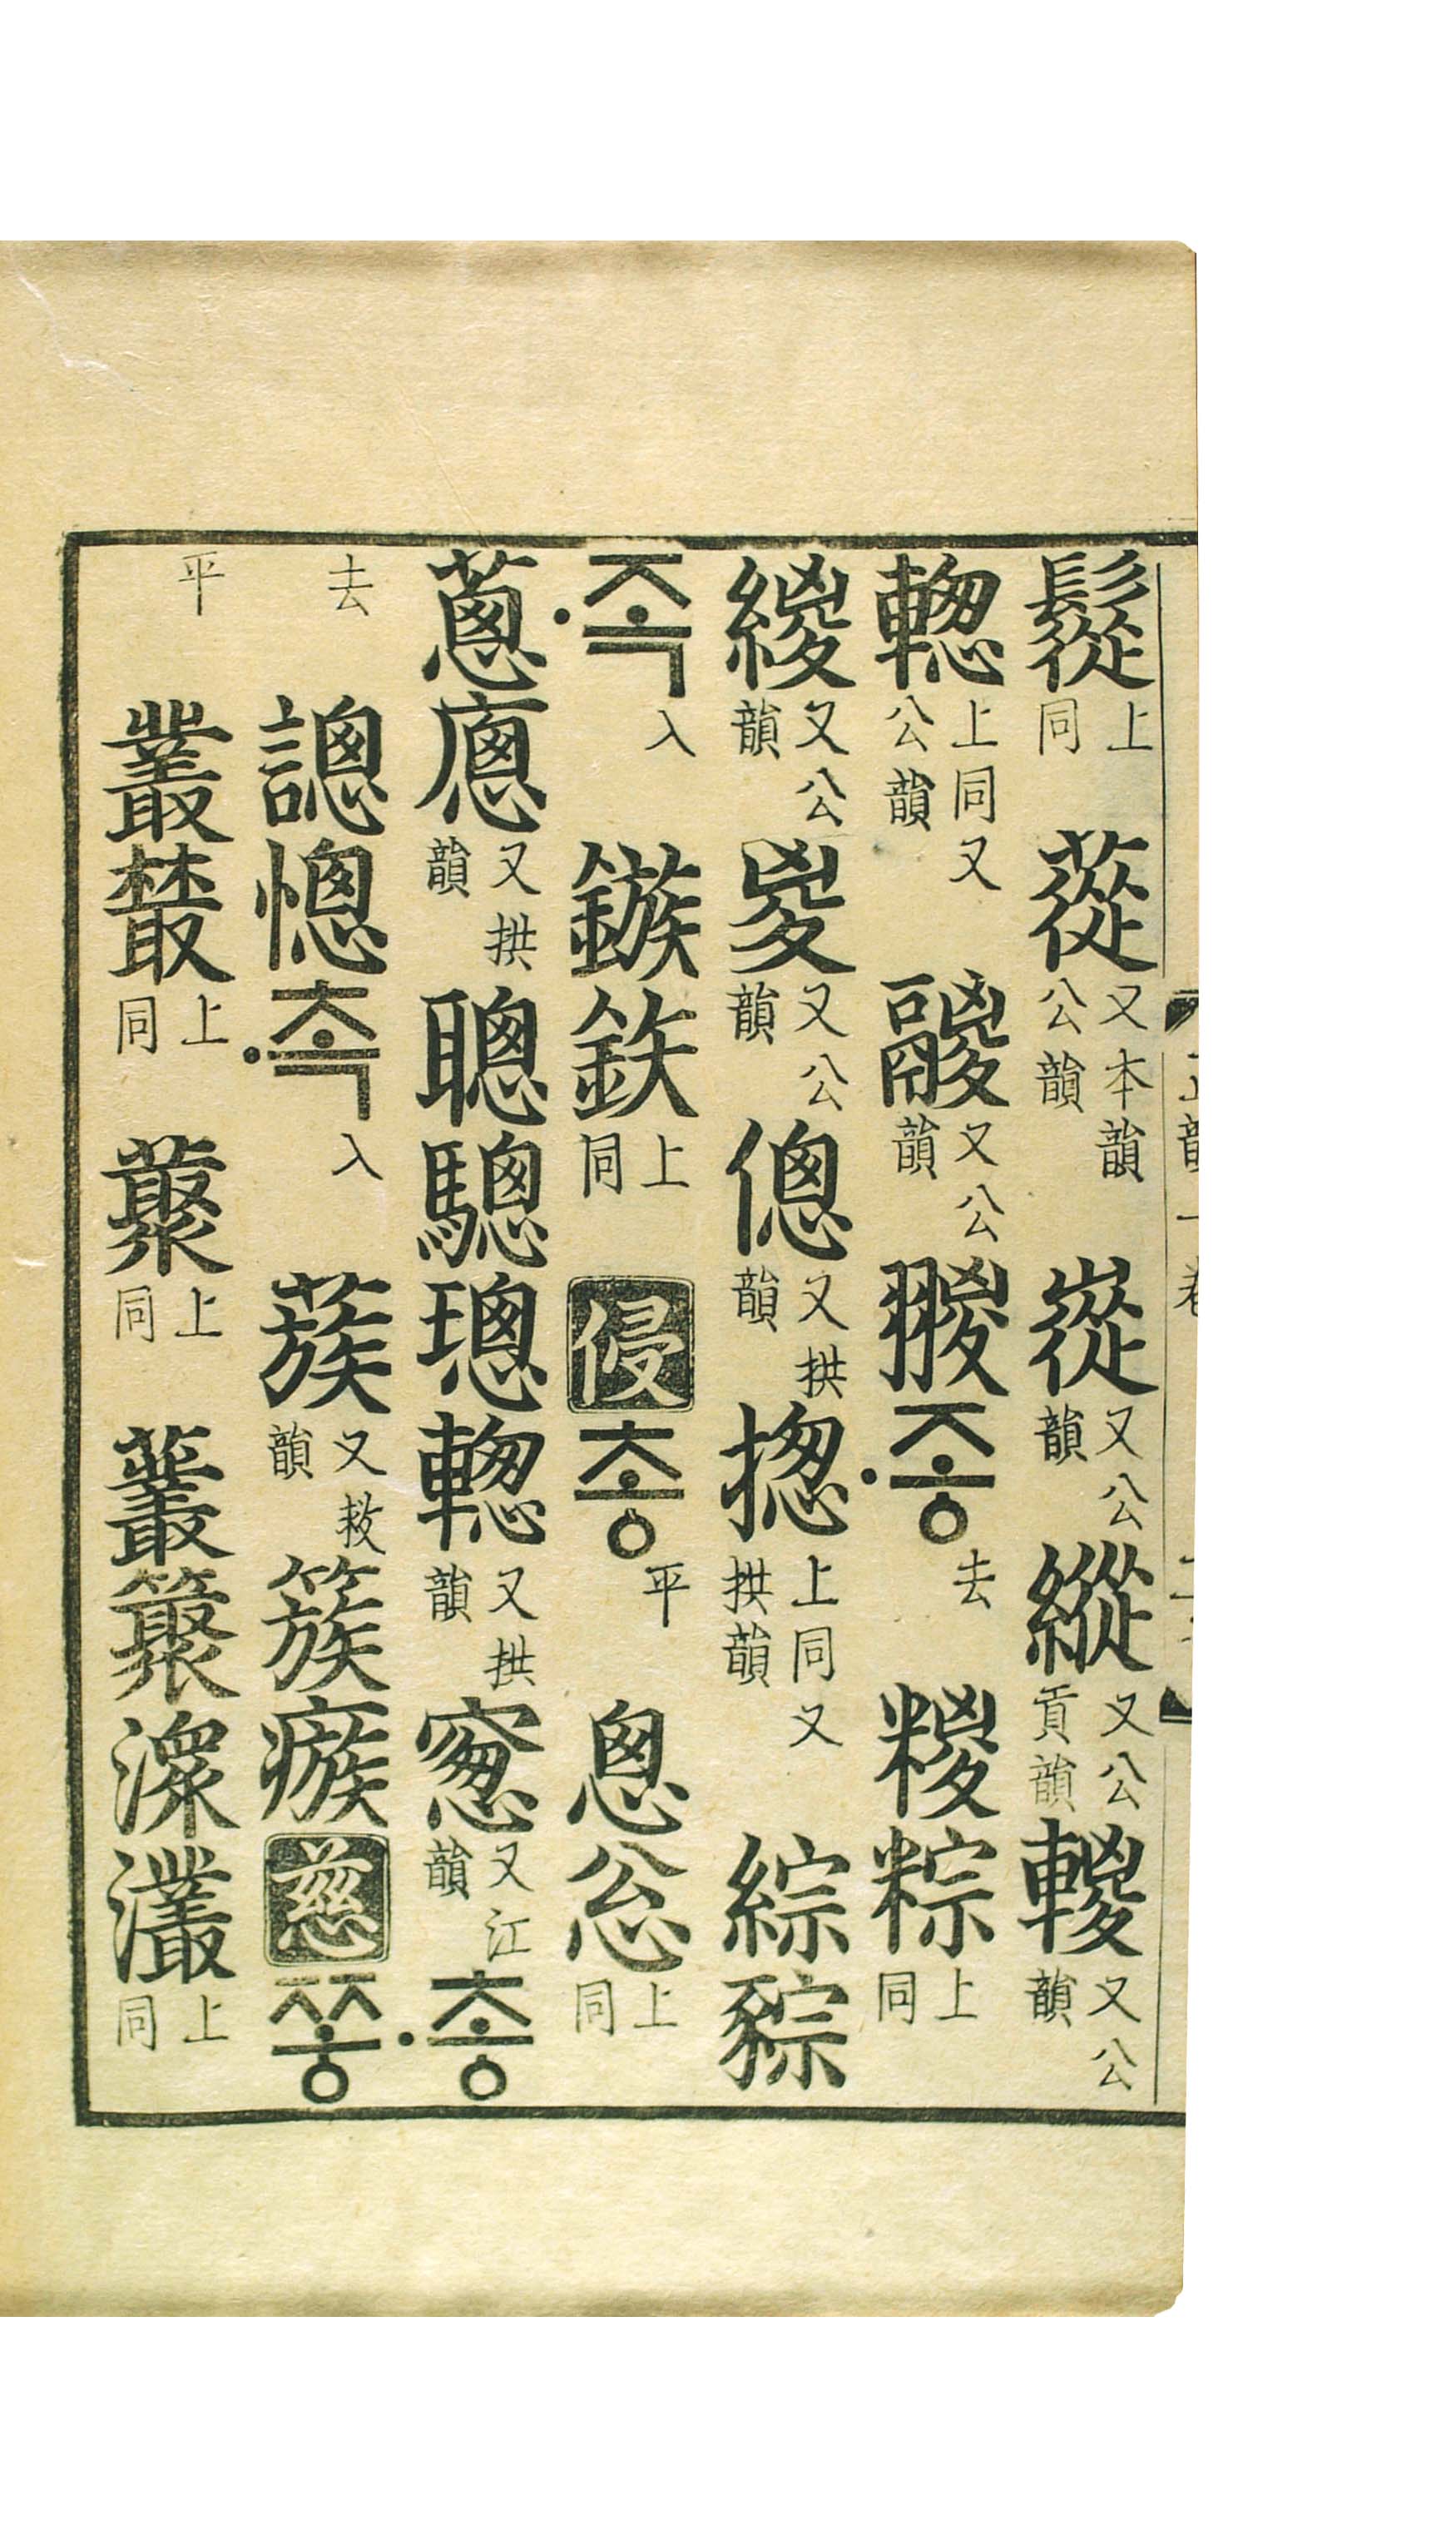 正韻一卷
上同 蓯 又本韻公韻 嵸 又公韻 縱 又公貢韻 又公韻
上同又公韻 鬷 又公韻 翪 조ᇰ〮 去 糉粽 上同
緵 又公韻 㚇 又公韻 傯 又拱韻 揔 上同又拱韻 綜
족〮 入 鏃鉃 上同 侵 초ᇰ 平 悤忩 上同
蔥㢔 又拱韻 聰驄璁 又拱韻 窻 又江韻 초ᇰ〮
去 謥憁 촉〮 入 蔟 又救韻 簇瘯 慈 쪼ᇰ
平 叢樷 上同 藂 上同 䕺 潀灇 上同